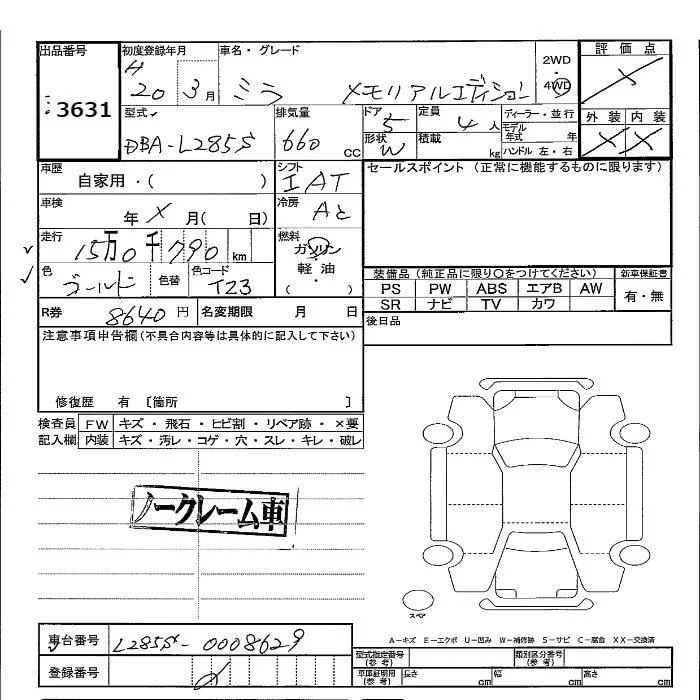 出品番号
3631
初度登録年月
H
20 3月
車名・グレード
ミラ メモリアルエディション
2WD
・
4WD
評価点
×
外装 内装
× ×
型式
DBA-L285S
排気量
660 cc
ドア
5
形状
W
定員
4 人
積載
kg
ディーラー・並行
モデル年式 年
ハンドル 左・右
車歴
自家用・( )
シフト
IAT
セールスポイント (正常に機能するものに限ります)
車検
年 × 月( 日)
冷房
Aと
走行
15万0千790 km
燃料
ガソリン
軽・油
( )
色
ゴールド
色替
色コード
T23
装備品 (純正品に限り○をつけてください)
PS PW ABS エアB AW
SR ナビ TV カワ
新車保証書
有・無
R券 8640 円
名変期限 月 日
後日品
注意事項申告欄 (不具合内容等は具体的に記入して下さい)
修復歴 有 〔箇所 〕
検査員記入欄
FW キズ・飛石・ヒビ割・リペア跡・×要
内装 キズ・汚レ・コゲ・穴・スレ・キレ・破レ
ノークレーム車
スペア
A-キズ E-エクボ U-凹み W-補修跡 S-サビ C-腐食 XX-交換済
車台番号 L285S-0008629
登録番号
型式指定番号
(参考)
類別区分番号
(参考)
車庫証明用
(参考)
長さ cm 幅 cm 高さ cm